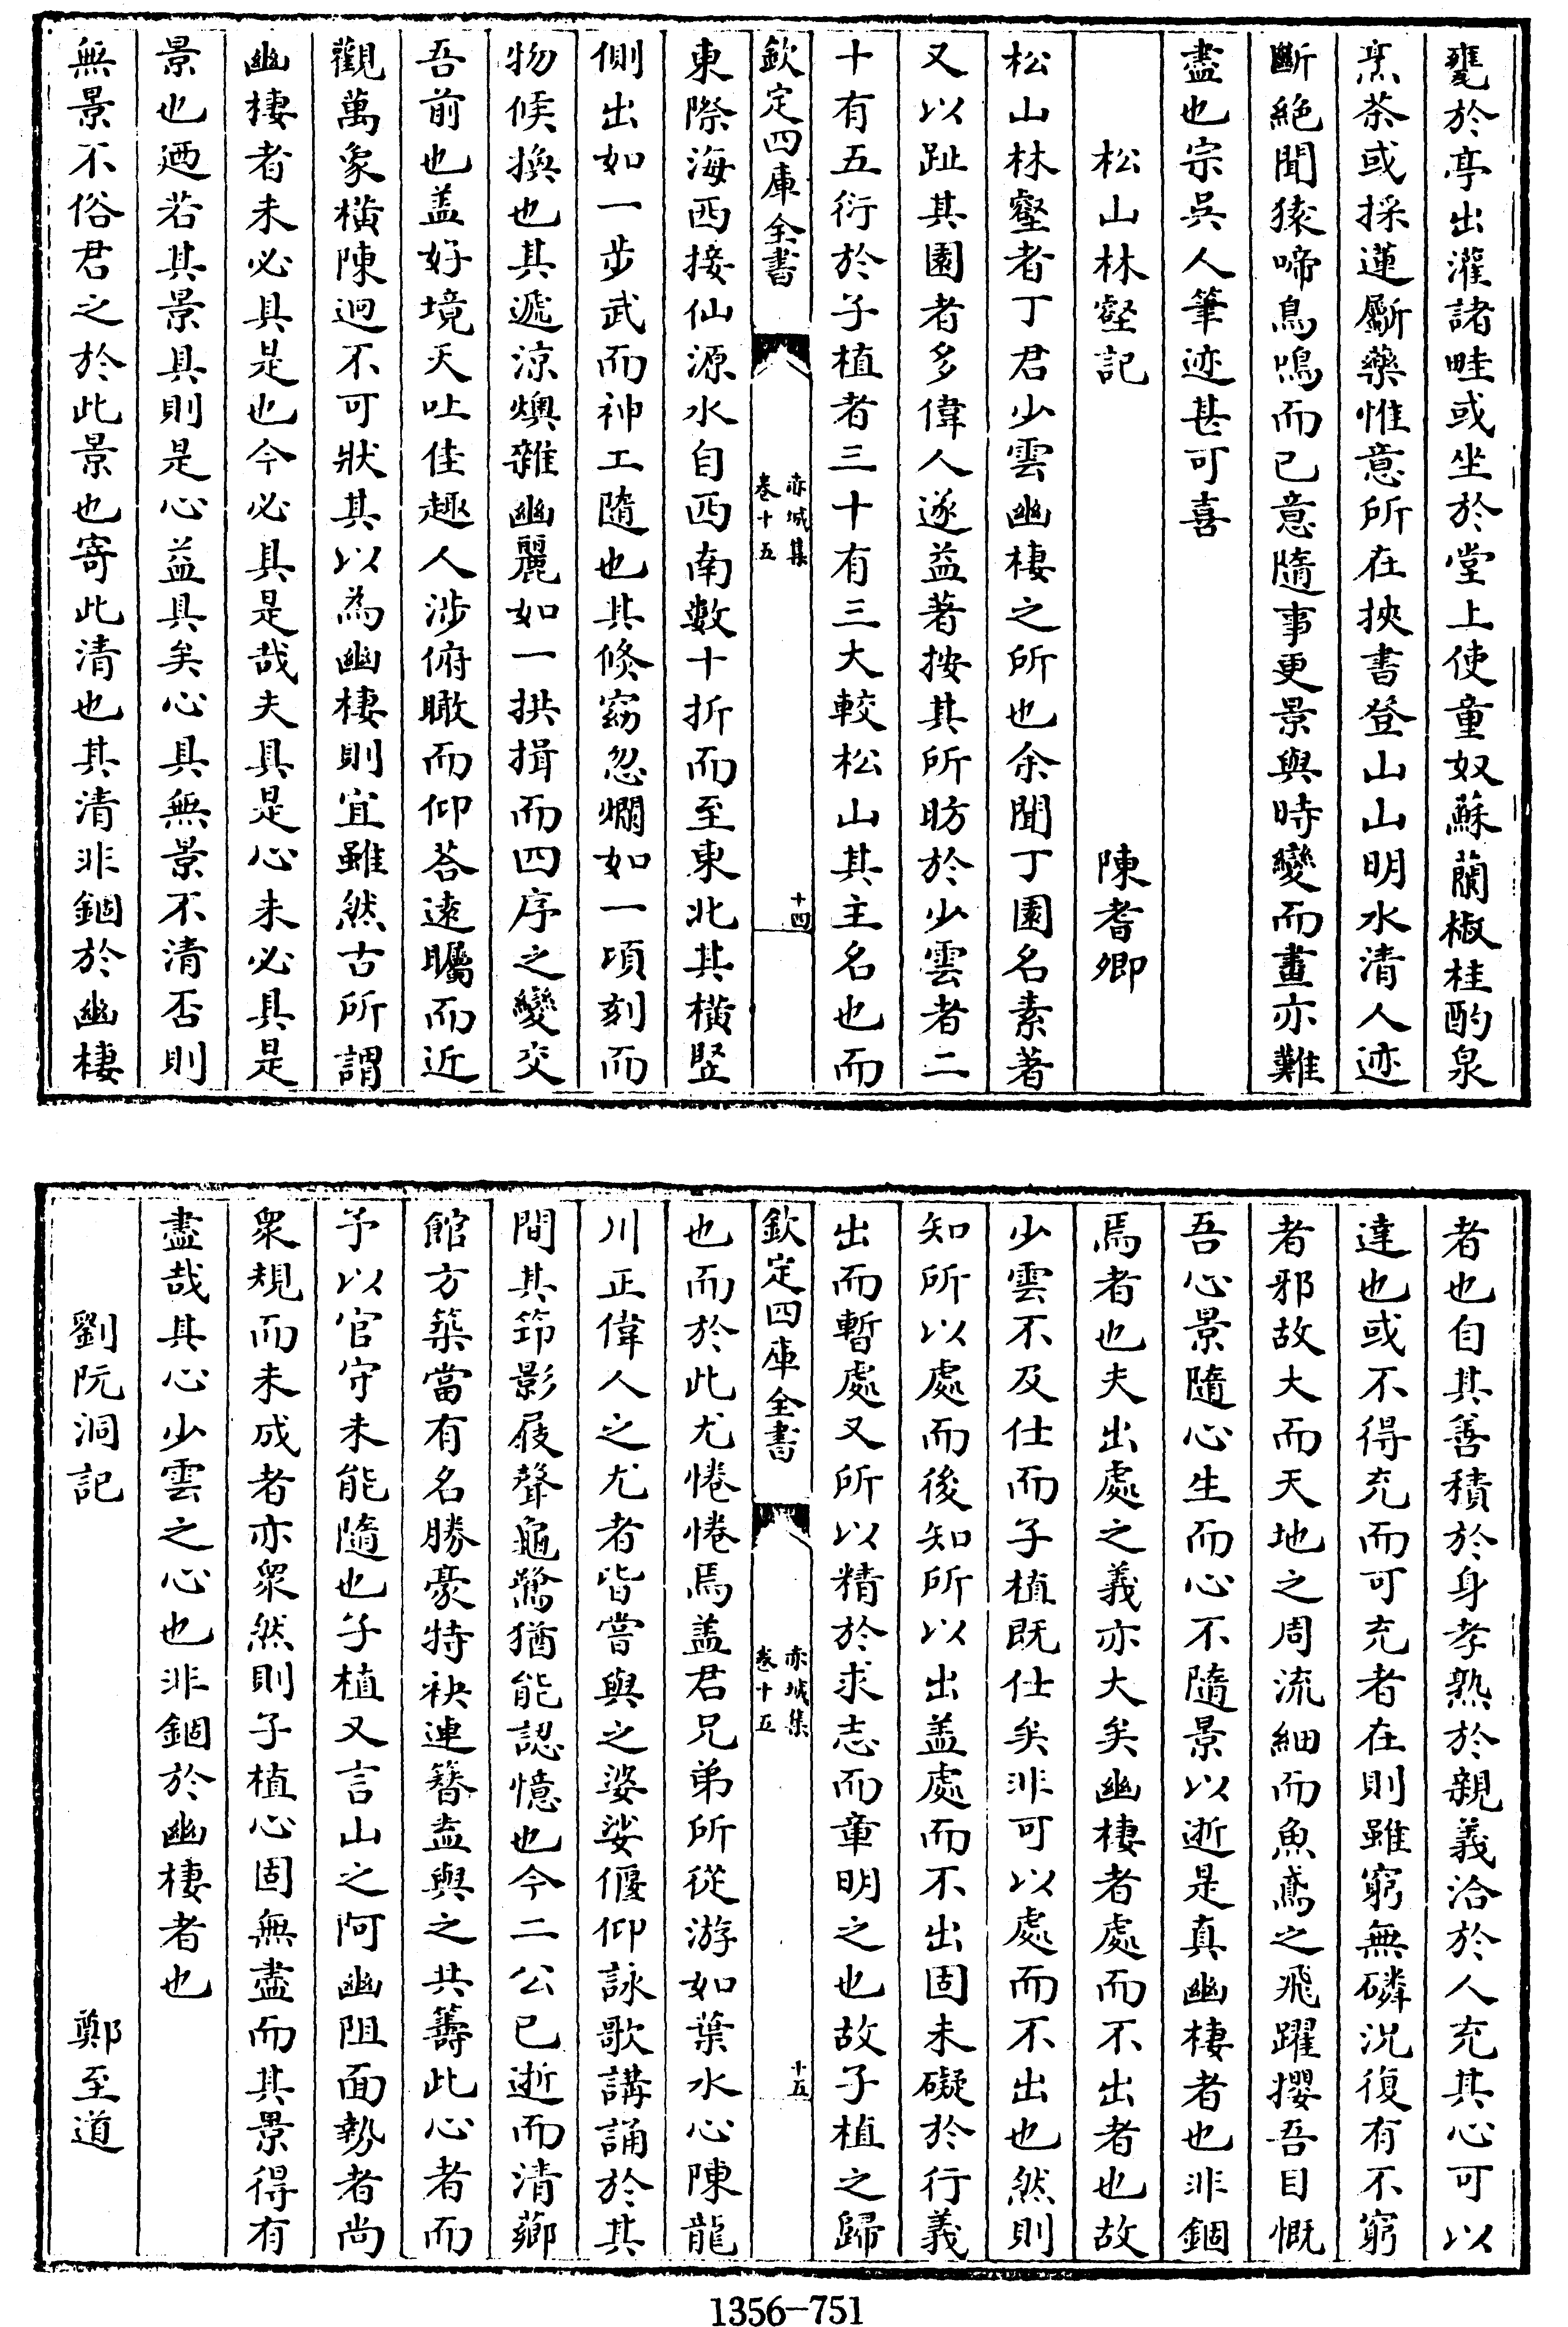 甕於亭出灌諸畦或坐於堂上使童奴蘇蘭椒桂酌泉
烹茶或採蓮斸藥惟意所在挾書登山山明水清人迹
斷絶聞猿啼鳥鳴而已意隨事更景與時變而畫亦難
盡也宗吳人筆迹甚可喜
松山林壑記 陳耆卿
松山林壑者丁君少雲幽棲之所也余聞丁園名素著
又以趾其園者多偉人遂益著按其所昉於少雲者二
十有五衍於子植者三十有三大較松山其主名也而
欽定四庫全書
赤城集
卷十五
十四
東際海西接仙源水自西南數十折而至東北其橫竪
側出如一步武而神工隨也其倏窈忽爛如一頃刻而
物候換也其遞涼燠雜幽麗如一拱揖而四序之變交
吾前也盖好境天吐佳趣人涉俯瞰而仰荅遠矚而近
觀萬象橫陳迥不可狀其以為幽棲則宜雖然古所謂
幽棲者未必具是也今必具是哉夫具是心未必具是
景也迺若其景具則是心益具矣心具無景不清否則
無景不俗君之於此景也寄此清也其清非錮於幽棲
者也自其善積於身孝熟於親義洽於人充其心可以
達也或不得充而可充者在則雖窮無磷況復有不窮
者邪故大而天地之周流細而魚鳶之飛躍攖吾目慨
吾心景隨心生而心不隨景以逝是真幽棲者也非錮
焉者也夫出處之義亦大矣幽棲者處而不出者也故
少雲不及仕而子植既仕矣非可以處而不出也然則
知所以處而後知所以出盖處而不出固未礙於行義
出而暫處又所以精於求志而章明之也故子植之歸
欽定四庫全書
赤城集
卷十五
十五
也而於此尤惓惓焉盖君兄弟所從游如葉水心陳龍
川正偉人之尤者皆嘗與之婆娑偃仰詠歌講誦於其
間其筇影屐聲龜鷺猶能認憶也今二公已逝而清薌
館方築當有名勝豪特袂連簪盍與之共籌此心者而
予以官守未能隨也子植又言山之阿幽阻面勢者尚
衆規而未成者亦衆然則子植心固無盡而其景得有
盡哉其心少雲之心也非錮於幽棲者也
劉阮洞記 鄭至道
1356-751